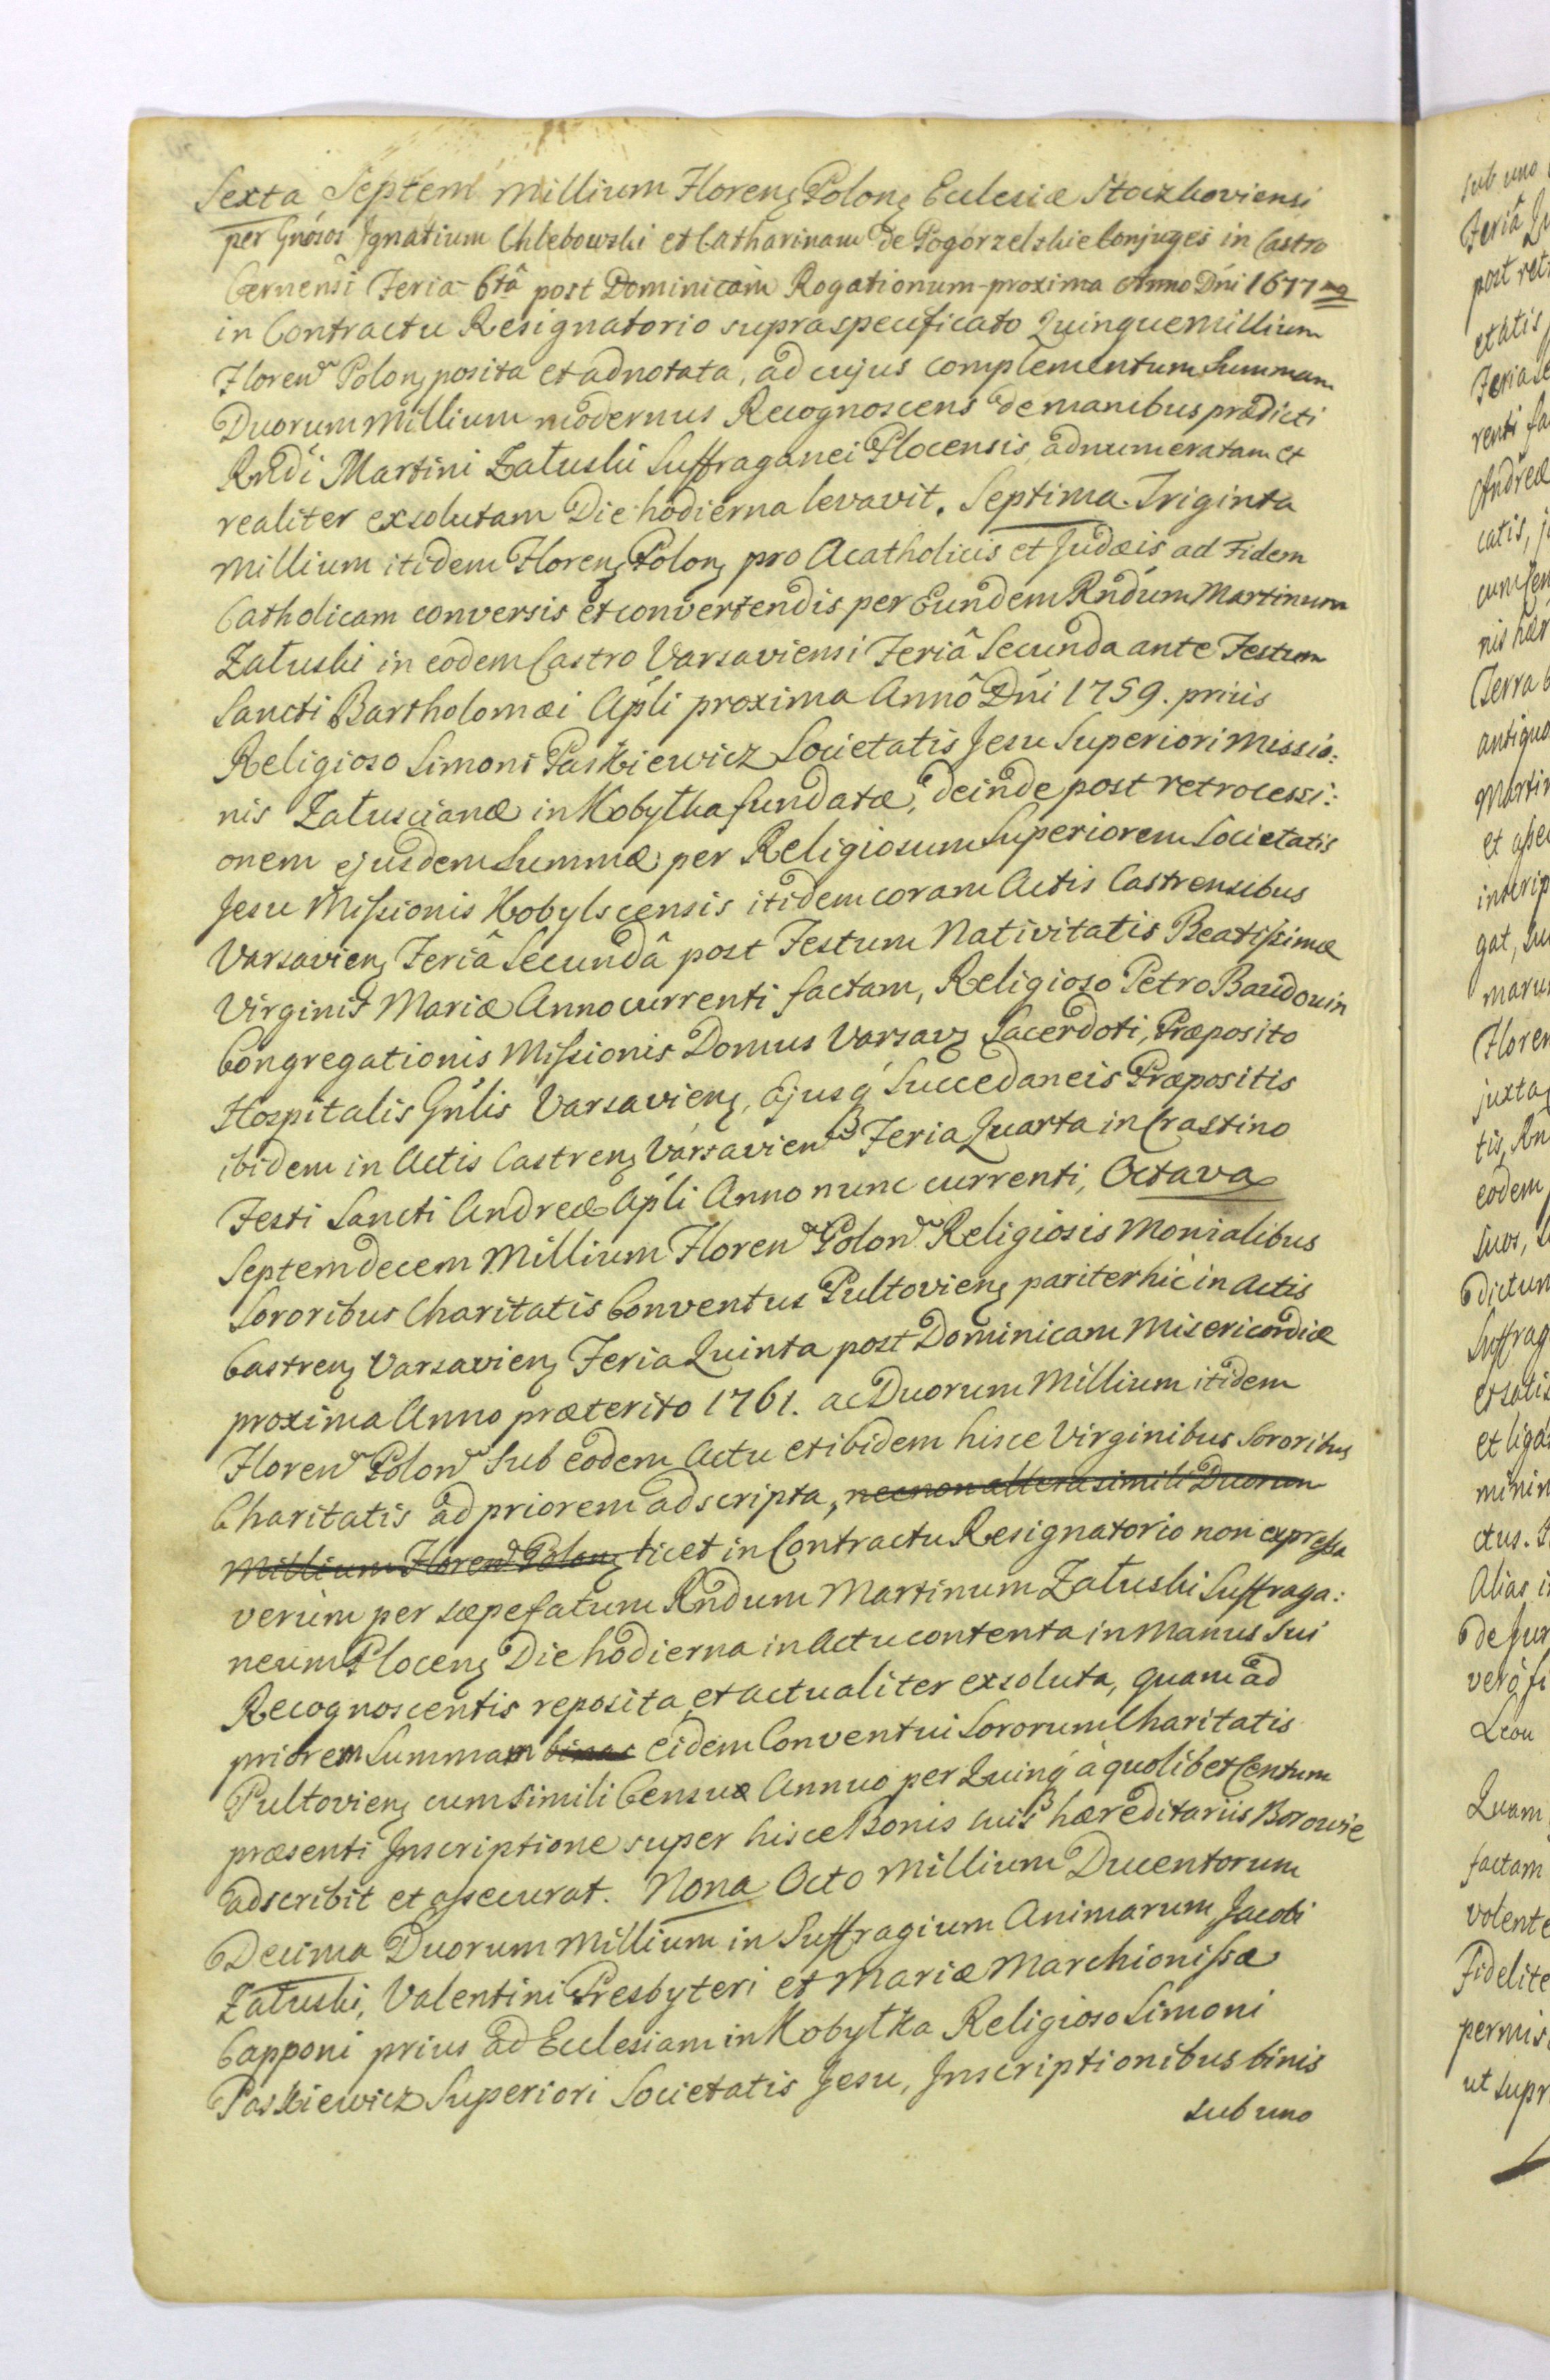 Sexta Septem Millium Floren: Polon: Ecclesiæ Stoczkoviensi
per Gnósos Ignatium Chlebowski et Catharinam de Pogorzelskie Conjuges in Castro
Cernensi Feria 6tâ post Dominicam Rogationum proxima Anno Dni 1677mo
in Contractu Resignatorio supraspecificato Quinque Millium
Floren: Polon: posita et adnotata, ad cujus complementum Summam
Duorum Millium modernus Recognoscens de manibus prædicti
Rndi Martini Załuski Suffraganei Plocensis, adnumeratam et
realiter exsolutam Die hodierna levavit. Septima Triginta
Millium itidem Floren: Polon: pro Acatholicis et Judæis ad Fidem
Catholicam conversis et convertendis per Eundem Rndum Martinum
Załuski in eodem Castro Varsaviensi Feriâ Secunda ante Festum
Sancti Bartholomæi Apli proxima Annô Dni 1759. priùs
Religioso Simoni Paszkiewicz Societatis Jesu Superiori Missio:
nis Załuscianæ in Kobyłka fundatæ, deinde post retrocessi:
onem ejusdem Summæ per Religiosum Superiorem Societatis
Jesu Missionis Kobylscensis itidem coram Actis Castrensibus
Varsavien: Feriâ Secundâ post Festum Nativitatis Beatissimæ
Virginis Mariæ Anno currenti factam, Religioso Petro Baudouin
Congregationis Missionis Domus Varsav: Sacerdoti, Præposito
Hospitalis Gnlis Varsavien:, Ejusq́ Succedaneis Præpositis
ibidem in Actis Castren: Varsavien: Feria Quarta in Crastino
Festi Sancti Andreæ Apli Anno nunc currenti, Octava
Septemdecem Millium Floren: Polon: Religiosis Monialibus
Sororibus Charitatis Conventus Pultovien: pariter hic in Actis
Castren: Varsavien: Feria Quinta post Dominicam Misericordiæ
proxima Anno præterito 1761. ac Duorum Millium itidem
Floren: Polon: Sub eodem Actu et ibidem hisce Virginibus Sororibus
Charitatis ad priorem adscripta, necnon altera simili Duorum
Millium Floren: Polon: licet in Contractu Resignatorio non expressa
verùm per sæpefatum Rndum Martinum Załuski Suffraga:
neum Plocen: Die hodierna in Actu contenta in Manus Sui
Recognoscentis reposita et actualiter exsoluta, quam ad
priorem Summam binas eidem Conventui Sororum Charitatis
Pultovien: cum simili Censua Annuo per Quinq́ à quolibet Centum
præsenti Inscriptione super hisce Bonis suis hæreditariis Borowie
adscribit et assecurat. Nona Octo Millium Ducentorum
Decima Duorum Millium in Suffragium Animarum Jacobi
Załuski, Valentini Presbyteri et Mariæ Marchionissæ
Capponi prius ad Ecclesiam in Kobyłka Religioso Simoni
Paszkiewicz Superiori Societatis Jesu, Inscriptionibus binis
sub uno